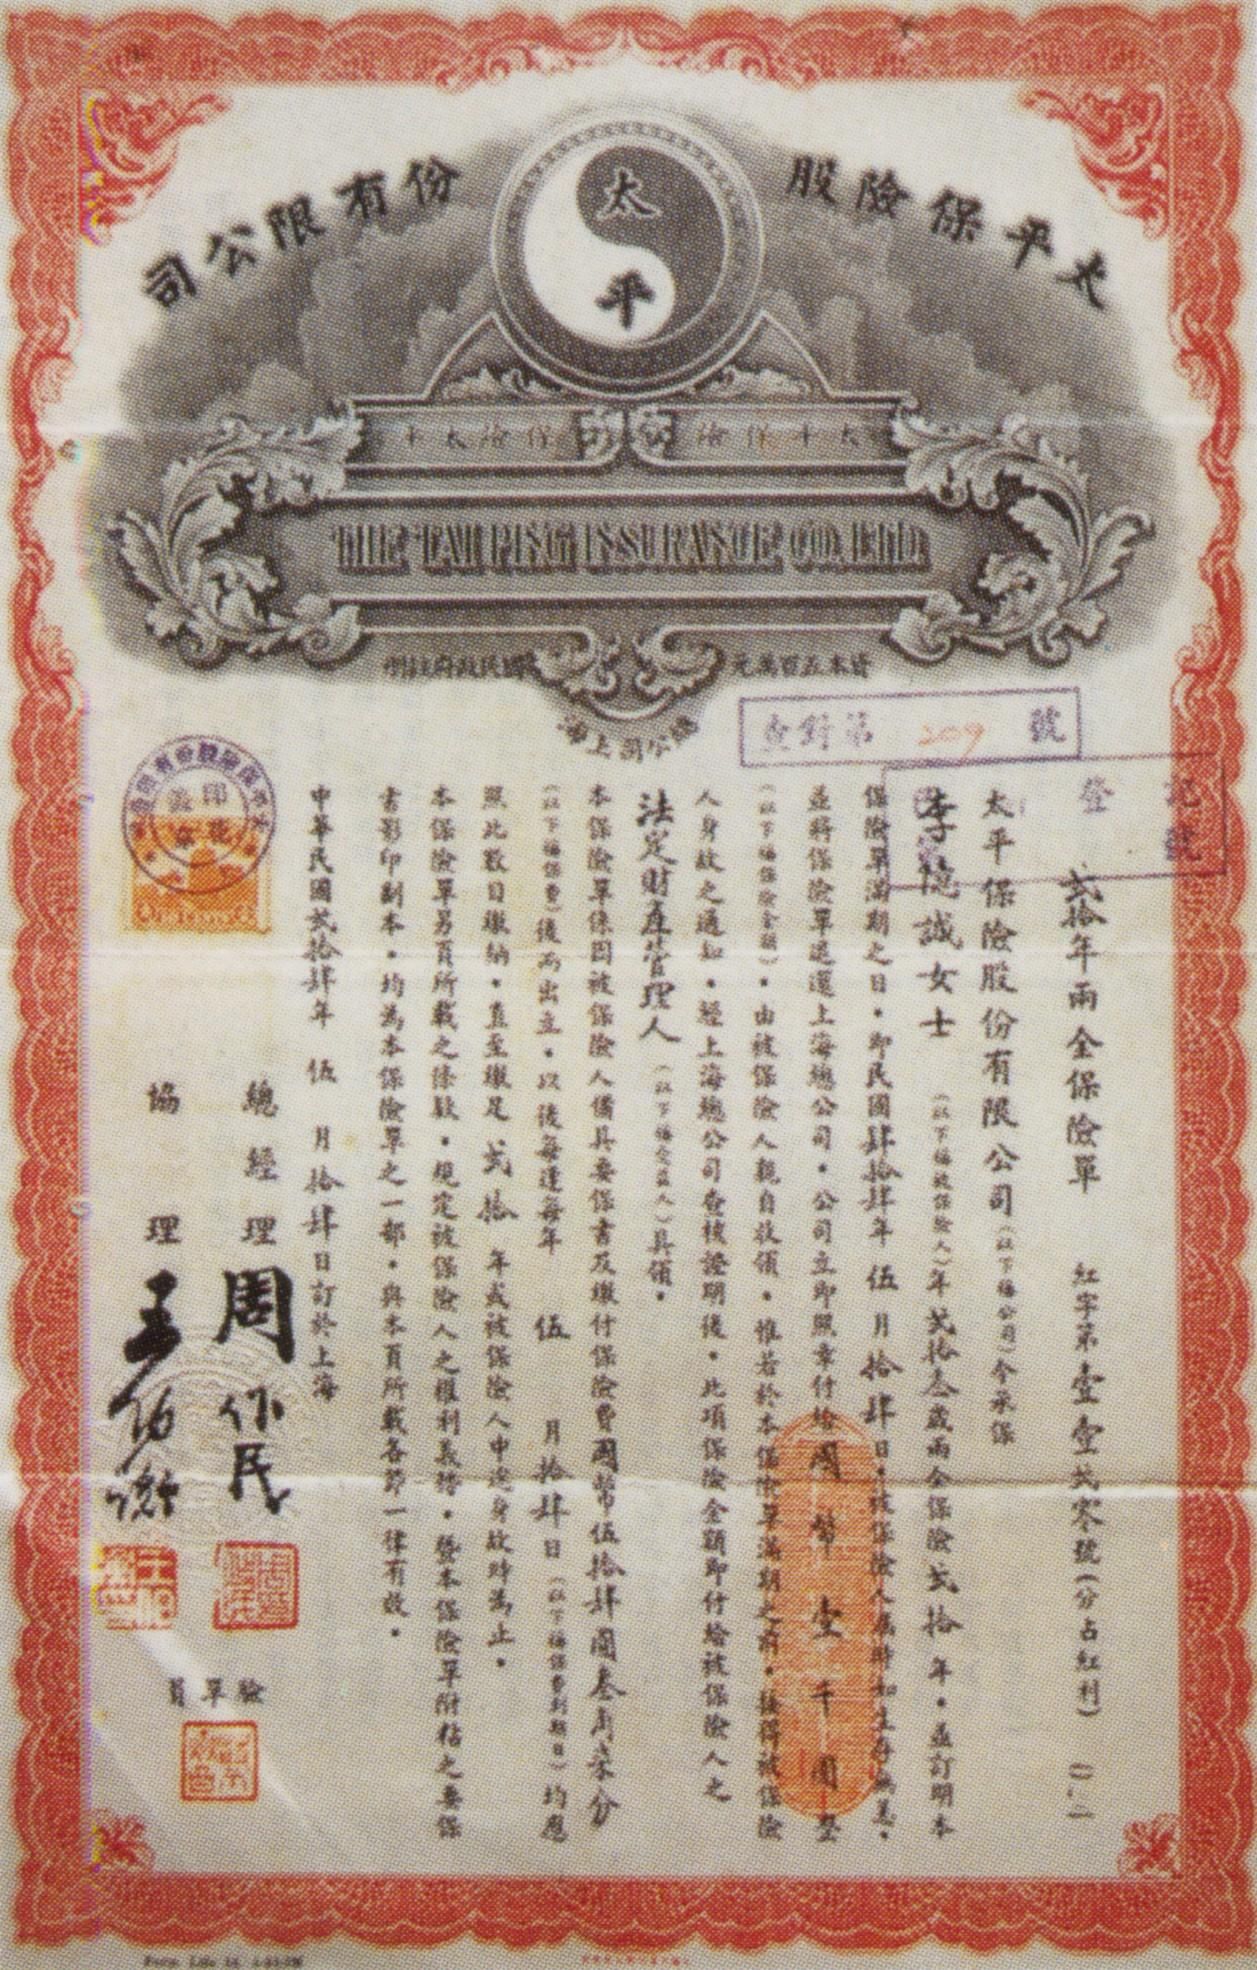 太平保險股份有限公司
太平
THE TAI PING INSURANCE CO. LTD.
資本五百萬元
國民政府註冊
總公司上海
查對第 209 號
登記
號
貳拾年兩全保險單 紅字第壹壹貳零號(分占紅利)
太平保險股份有限公司(以下稱公司)今承保
李憶誠女士(以下稱被保險人)年貳拾叁歲兩全保險貳拾年·並訂明本
保險單滿期之日·即民國肆拾肆年伍月拾肆日·被保險人屆時如生存無恙·
並將保險單退還上海總公司·公司立即照章付給國幣壹千圓整
(以下稱保險金額)·由被保險人親自收領·惟若於本保險單滿期之前·獲得被保險
人身故之通知·經上海總公司查核證明後·此項保險金額即付給被保險人之
法定財產管理人(以下稱受益人)具領·
本保險單係因被保險人備具要保書及繳付保險費國幣伍拾肆圓叁角柒分
(以下稱保費)後而出立·以後每逢每年伍月拾肆日(以下稱保費到期日)均應
照此數目繳納·直至繳足貳拾年或被保險人中途身故時為止·
本保險單另頁所載之條款·規定被保險人之權利義務·暨本保險單附粘之要保
書影印副本·均為本保險單之一部·與本頁所載各節一律有效·
中華民國貳拾肆年伍月拾肆日訂於上海
總經理 周作民
協理 王伯衡
驗單員